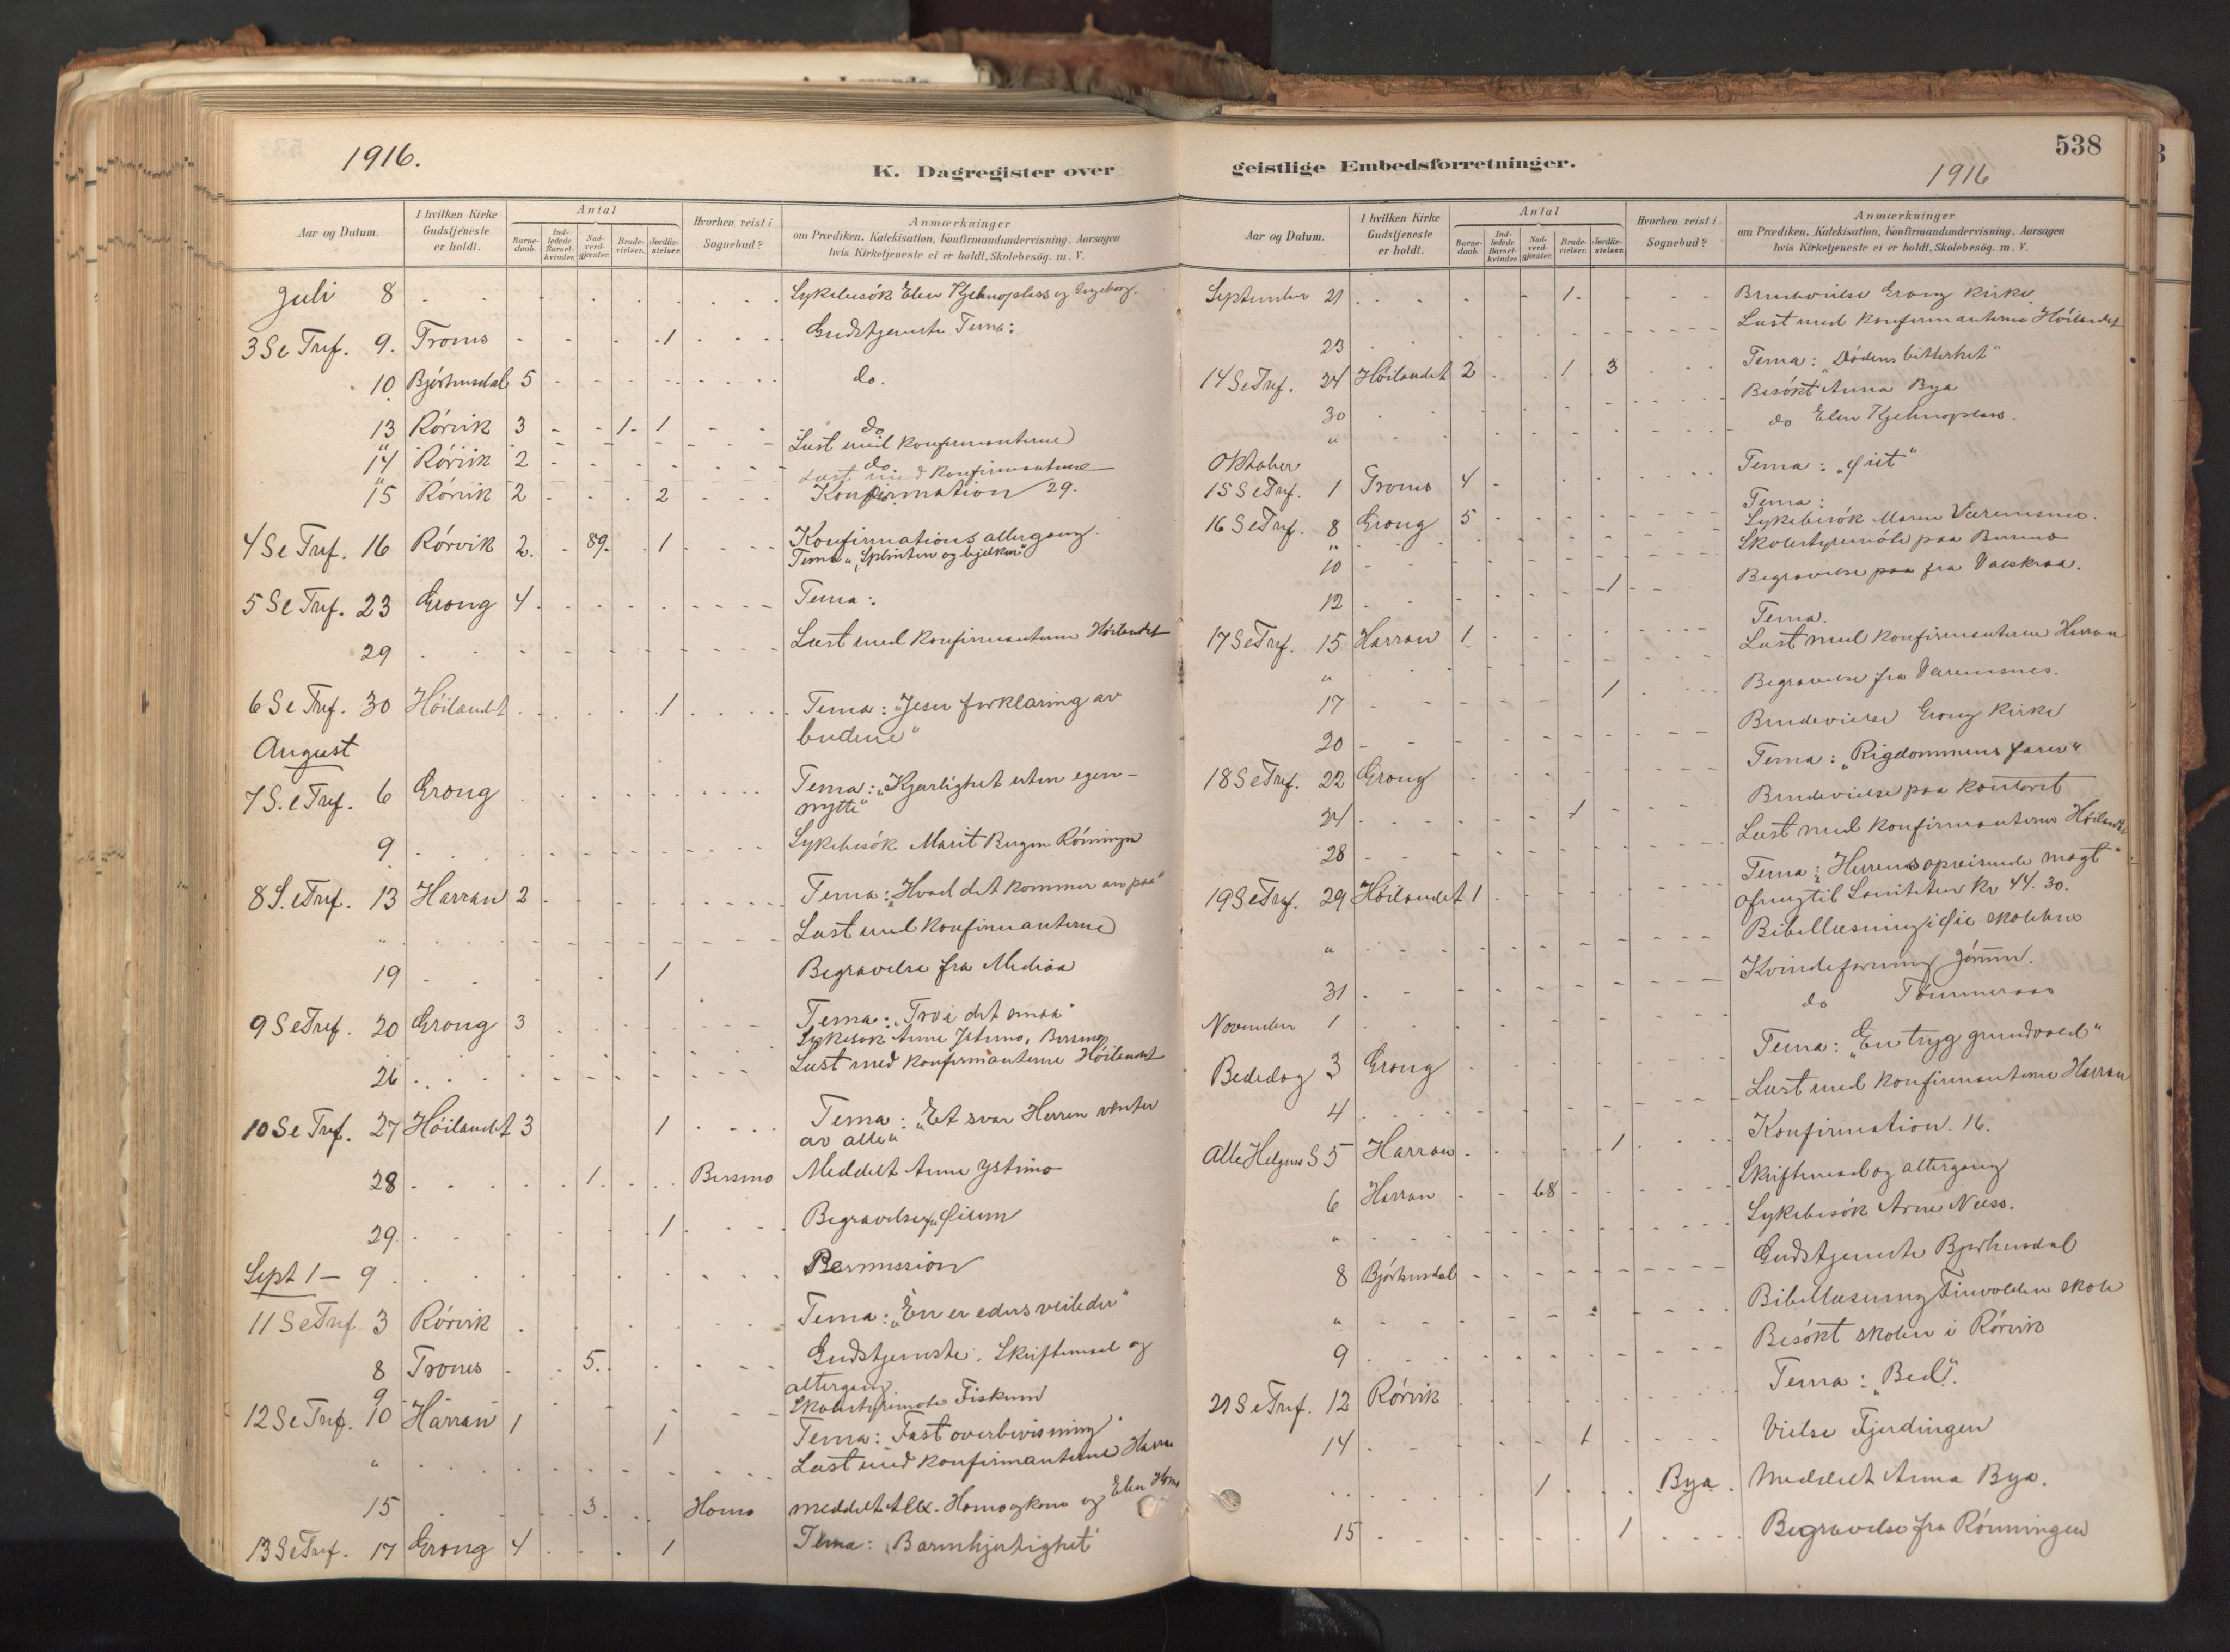 1916.
K. Dagregister over
Aar og Datum.
I hvilken Kirke Gudstjeneste er holdt.
Antal
Barnedaab.
Indledede Barselkvinder.
Nadverdgjæster.
Brudevielser.
Jordfæstelser.
Hvorhen reist i Sognebud?
Anmærkninger
om Prædiken, Katekisation, Konfirmandundervisning. Aarsagen
hvis Kirketjeneste ei er holdt, Skolebesög. m. V.
Juli 8 Sykebesök Elen og Ingeborg.
3 S e Tref. 9. Troms 1 Gudstjeneste Tema:
10 Bjørhusdal 5 do.
13 Rørvik 3 1 1 do
" Læst med konfirmanterne
14 Rørvik 2 do
" Læst med konfirmanterne
15 Rørvik 2 2 Konfirmation 29.
4 S e Tref. 16 Rørvik 2. 89. 1 Konfirmations altergang.
Tema "Splinten og bjelken"
5 S e Tref. 23 Grong 4 Tema:
29 Læst med konfirmanterne Höilandet
6 S e Tref. 30 Höilandet 1 Tema: "Jesu forklaring av
budene"
August
7 S. e Tref. 6 Grong Tema: "Kjærlighet uten egen-
nytte"
9 Sykebesök Marit Bergen Röningen
8 S. e Tref. 13 Harran 2 Tema: "Hvad det kommer an paa"
" Læst med konfirmanterne
19 1 Begravelse fra Mediaa
9 S e Tref. 20 Grong 3 Tema: "Tro i det smaa"
Sykesok Anne Bersmo
26 Læst med konfirmanterne Höilandet
10 S e Tref. 27 Höilandet 3 1 Tema: "Et svar Herren venter
av alle"
28 1 Bersmo Meddelt Anne Ystimo
29 1 Begravelse
Sept 1 - 9 Permission
11 S e Tref 3 Rørvik Tema: "En er eders veileder"
8 Troms 5. Gudstjeneste. Skriftemaal og
altergang
9 Skolestyremöte Fiskum
12 S e Tref. 10 Harran 1 1 Tema: Fast overbevisning"
" Læst med konfirmanterne Harran
15 3 Homo meddelt Alex. Homo og kone og Elen Homo
13 S e Tref. 17 Grong 4 1 Tema: "Barmhjertighet"
538
geistlige Embedsforretninger.
1916
Aar og Datum.
I hvilken Kirke Gudstjeneste er holdt.
Antal
Barnedaab.
Indledede Barselkvinder.
Nadverdgjæster.
Brudevielser.
Jordfæstelser.
Hvorhen reist i Sognebud?
Anmærkninger
om Prædiken, Katekisation, Konfirmandundervisning. Aarsagen
hvis Kirketjeneste ei er holdt, Skolebesög. m. V.
September 21 1 Brudevielse Grong Kirke
23 Læst med konfirmanterne Höilandet
14 S e Tref. 24 Höilandet 2 1 3 Tema: "Dödens bitterhet"
30 Besökt Anna Bya
" do Elen
Oktober
15 S e Tref. 1 Troms 4 Tema:
16 S e Tref. 8 Grong 5 Tema:
" Sykebesök Maren Væremsmo.
10 Skolestyremöte paa Bersmo
12 1 Begravelse paa fra
17 S e Tref. 15 Harran 1 Tema.
" Læst med konfirmanterne Harran
17 1 Begravelse fra Væremsnes.
20 Brudevielse Grong Kirke
18 S e Tref. 22 Grong Tema: "Rigdommens farer"
24 1 Brudevielse paa kontoret
28 Læst med konfirmanterne Höilandet
19 S e Tref. 29 Höilandet 1 Tema: "Herrens opreisende magt"
Ofring til Saniteten kr 44. 30.
" Bibellæsning i Öie skolehus
31 Kvindeforening
November 1 do Tömmeraas
Bededag 3 Grong Tema: "En tryg grundvold"
4 Læst med konfirmanterne Harran
Alle Helgens S 5 Harran 1 Konfirmation. 16.
6 Harran 68 Skriftemaal og altergang
" Sykebesök Arne Ness.
8 Bjørhusdal Gudstjeneste Bjørhusdal
" Bibellæsning Finvolden skole
9 Besökt skolen i Rörvik
21 S e Tref. 12 Rørvik Tema: "Bed".
14 1 Vielse Fjerdingen
1 Bya. Meddelt Anna Bya.
15 1 Begravelse fra Rönningen